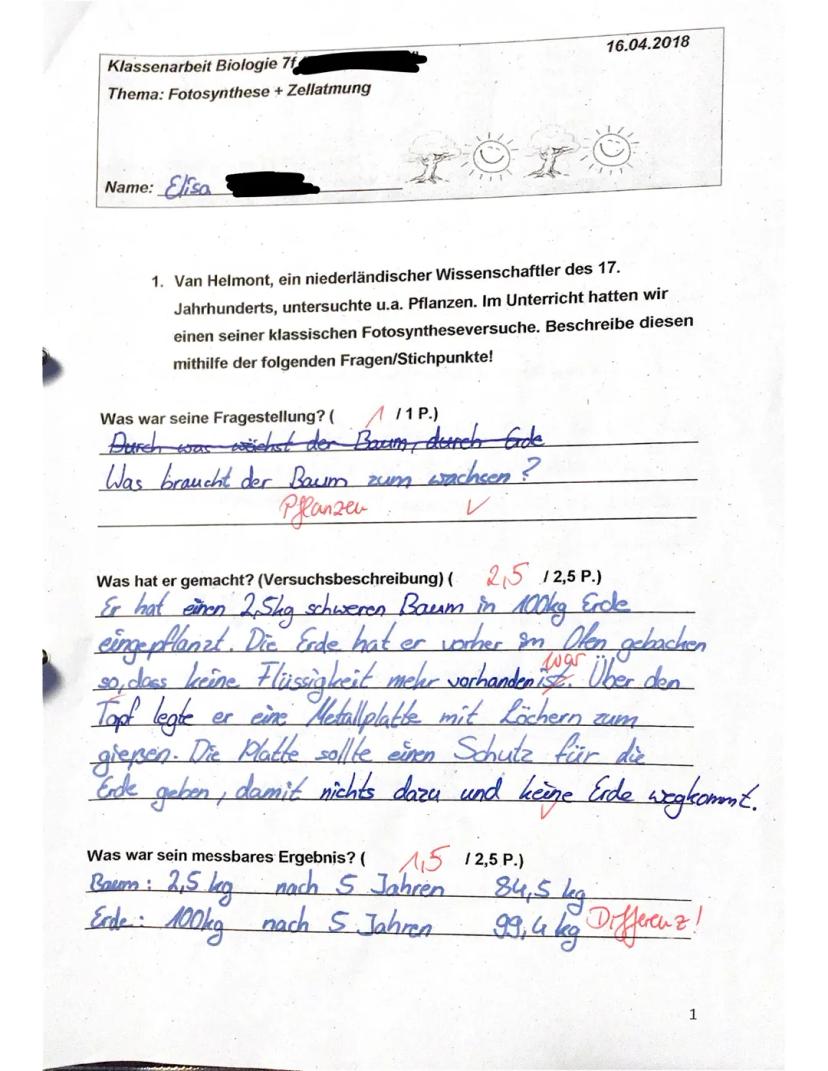 16.04.2018
Klassenarbeit Biologie 7f
Thema: Fotosynthese + Zellatmung
Name: Elisa
1. Van Helmont, ein niederländischer Wissenschaftler des 17.
Jahrhunderts, untersuchte u.a. Pflanzen. Im Unterricht hatten wir
einen seiner klassischen Fotosyntheseversuche. Beschreibe diesen
mithilfe der folgenden Fragen/Stichpunkte!
Was war seine Fragestellung? ( 1 / 1 P.)
Durch was wächst der Baum, durch Erde
Was braucht der Baum zum wachsen?
Pflanzen ✓
Was hat er gemacht? (Versuchsbeschreibung) ( 2,5 / 2,5 P.)
Er hat einen 2,5kg schweren Baum in 100kg Erde
eingepflanzt. Die Erde hat er vorher im Ofen gebachen
war
so, dass keine Flüssigkeit mehr vorhanden ist. Über den
Topf legte er eine Metallplatte mit Löchern zum
gießen. Die Platte sollte einen Schutz für die
Erde geben, damit nichts dazu und keine Erde wegkommt.
✓
Was war sein messbares Ergebnis? ( 1,5 / 2,5 P.)
Baum: 2,5 kg nach 5 Jahren 84,5 kg
Erde: 100kg nach 5 Jahren 99,4 kg Differenz!
1